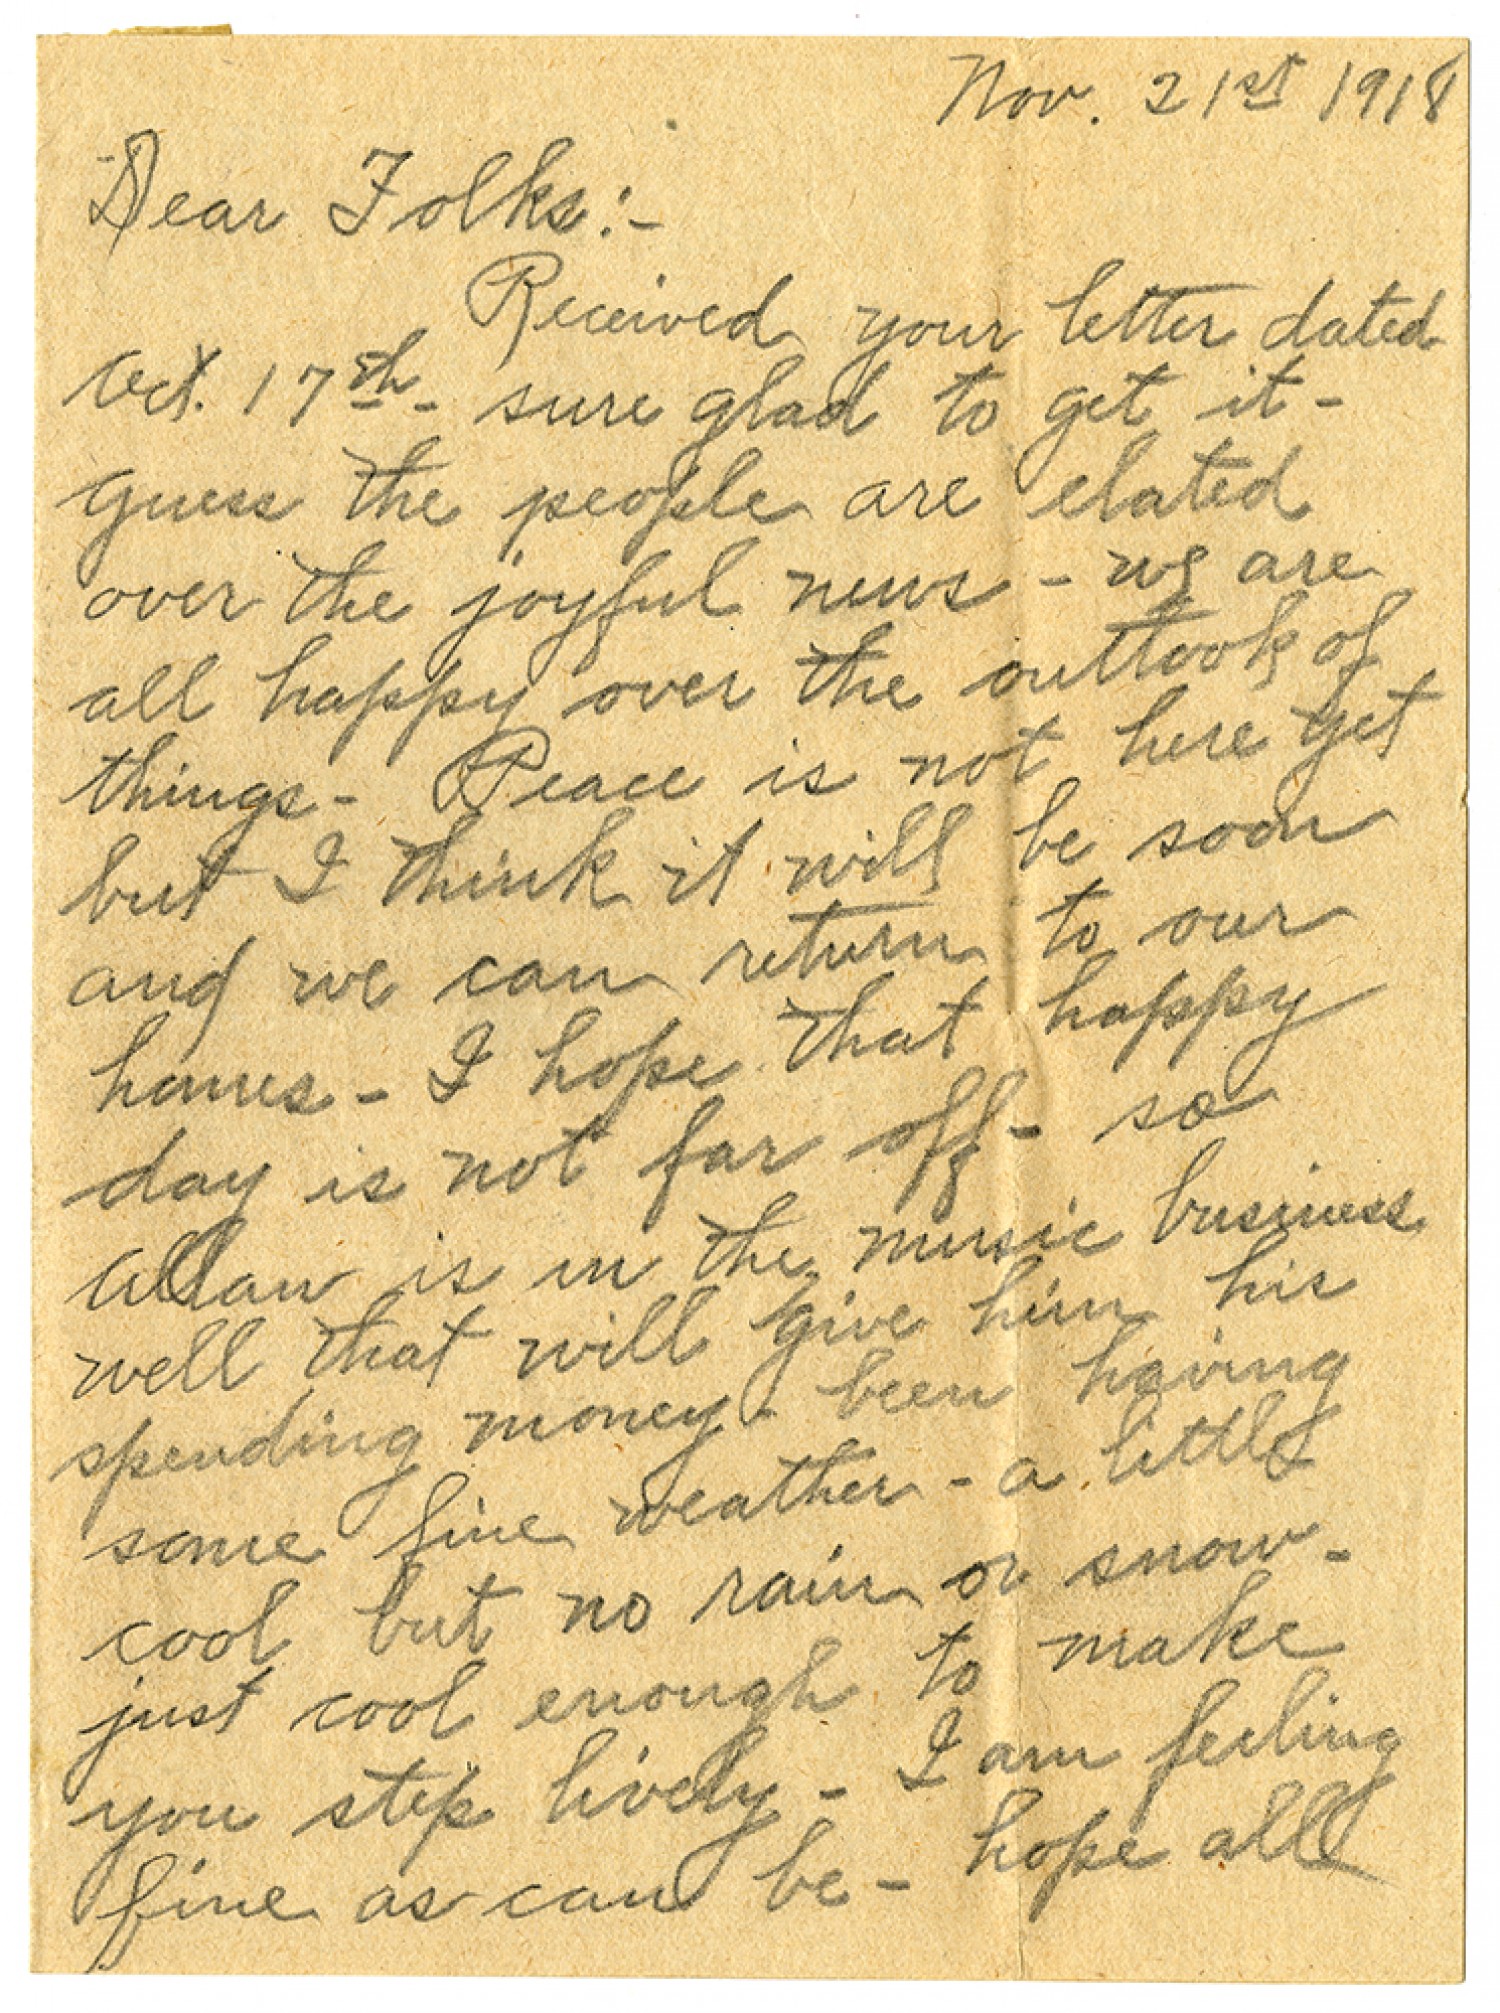 Nov. 21st 1918
Dear Folks:-
Received your letter dated
Oct. 17th - sure glad to get it -
guess the people are elated
over the joyful news - we are
all happy over the outlook of
things - Peace is not here yet
but I think it will be soon
and we can return to our
homes - I hope that happy
day is not far off - so
Allan is in the music business
well that will give him his
spending money - been having
some fine weather - a little
cool but no rain or snow -
just cool enough to make
you step lively - I am feeling
fine as can be - hope all